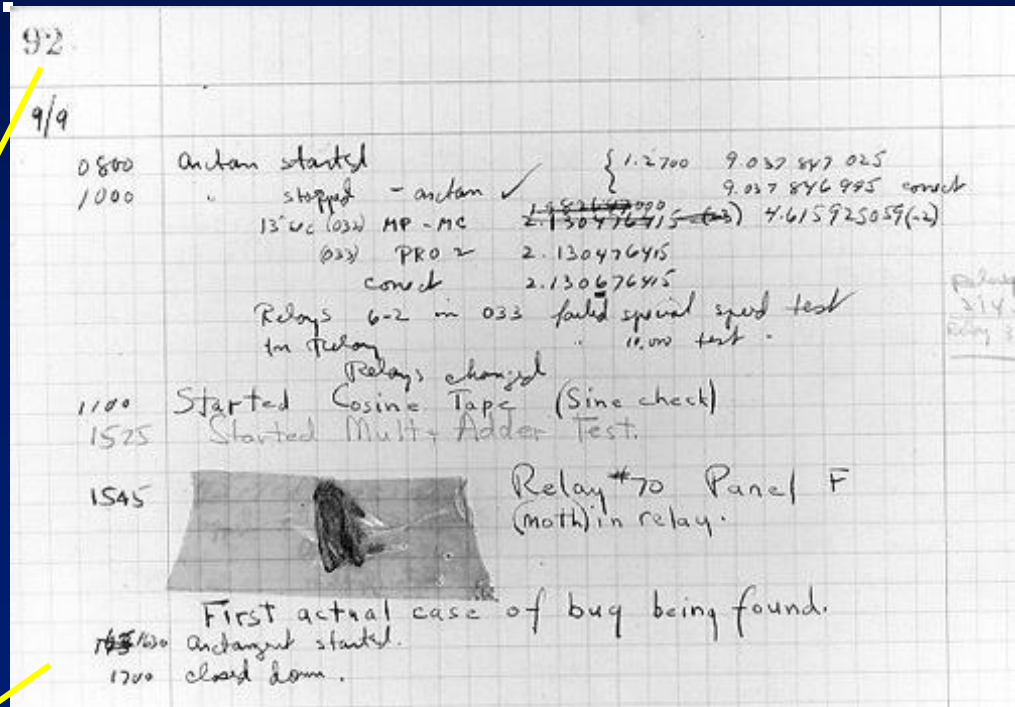 92
9/9
0800 arctan started { 1.2700 9.037 847 025
1000 " stopped - arctan ✓ 9.037 846 995 correct
13"uc (032) MP - MC 2.130476415 (-3) 4.615925059(-2)
(033) PRO 2 2.130476415
correct 2.130676415
Relays 6-2 in 033 failed special speed test
in Relay " 10.000 test .
Relays changed
1100 Started Cosine Tape (Sine check)
1525 Started Mult + Adder Test.
1545 Relay #70 Panel F
(moth) in relay.
First actual case of bug being found.
1630 arctangent started.
1700 closed down .